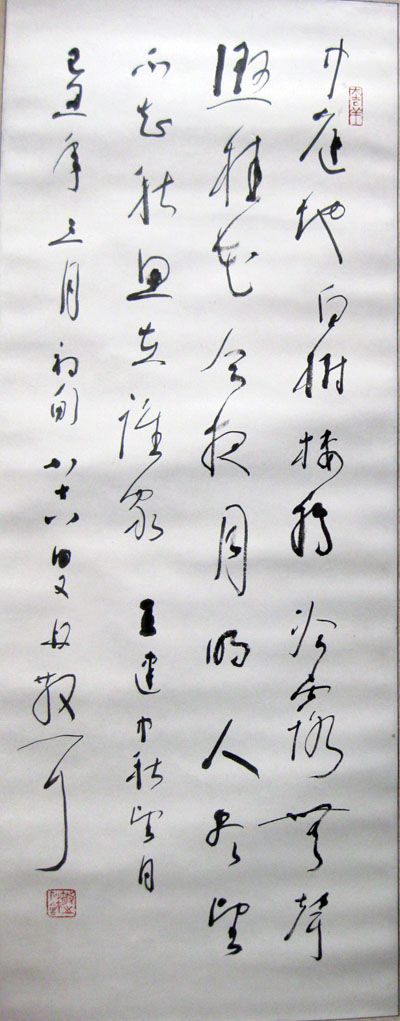 中庭地白樹棲鴉冷露無聲
濕桂花今夜月明人盡望
不知秋思在誰家 王建中秋望月
己丑年三月初旬八十八叟
大吉羊